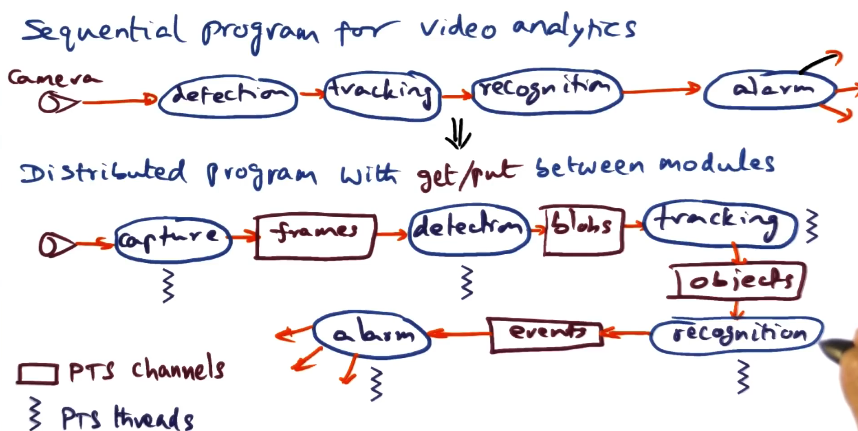 Sequential program for video analytics
Camera
detection tracking recognition alarm
Distributed program with get/put between modules
capture frames detection blobs tracking
objects
alarm events recognition
PTS channels
PTS threads